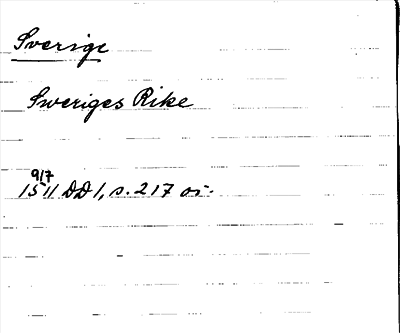 Sverige
Sweriges Rike
9/7
1511 DD 1, s. 217 o